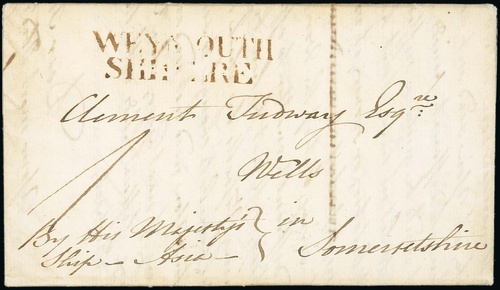 WEYMOUTH
SHIP LRE
Clement Tudway Esqre
Wells
in
Somersetshire
By His Majesty's
Ship - Asia -